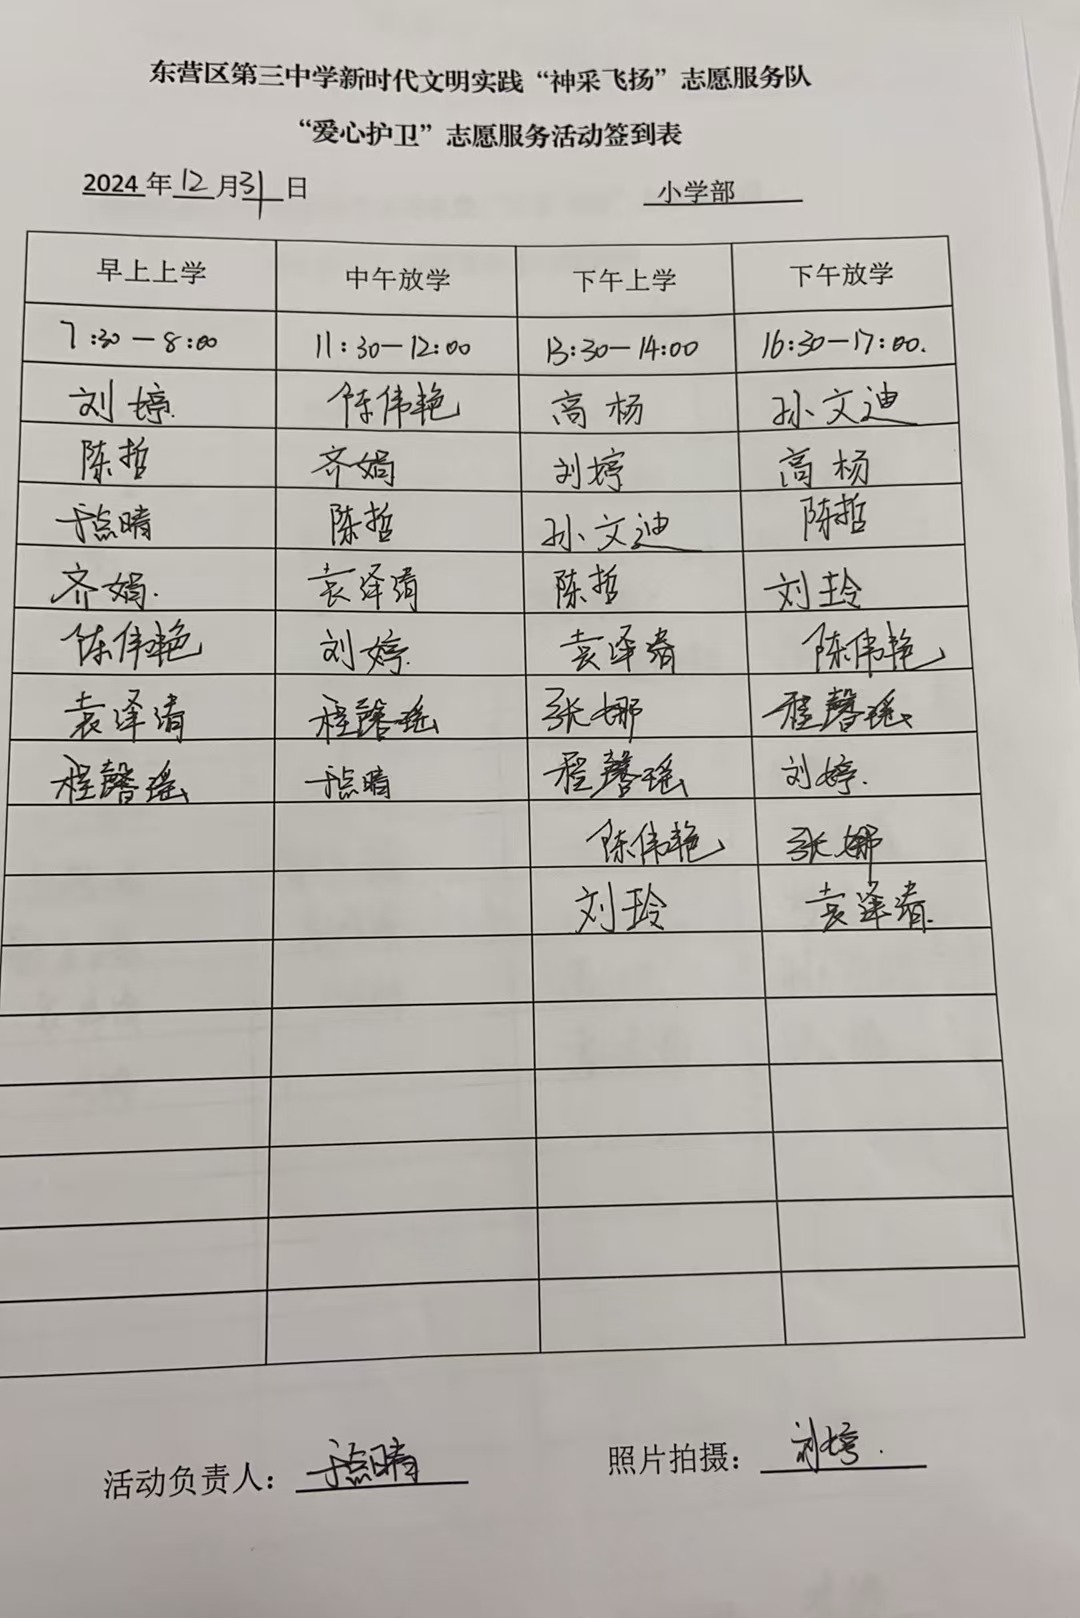 东营区第三中学新时代文明实践“神采飞扬”志愿服务队
“爱心护卫”志愿服务活动签到表
2024年12月31日 小学部
早上上学 中午放学 下午上学 下午放学
7:30—8:00 11:30—12:00 13:30—14:00 16:30—17:00.
刘婷. 陈伟艳 高杨 孙文迪
陈哲 齐娟 刘婷 高杨
于点晴 陈哲 孙文迪 陈哲
齐娟. 袁泽清 陈哲 刘玲
陈伟艳 刘婷. 袁泽清 陈伟艳
袁泽清 程馨瑶 张娜 程馨瑶
程馨瑶 于点晴 程馨瑶 刘婷.
陈伟艳 张娜
刘玲 袁泽清.
活动负责人：于点晴 照片拍摄：刘婷.